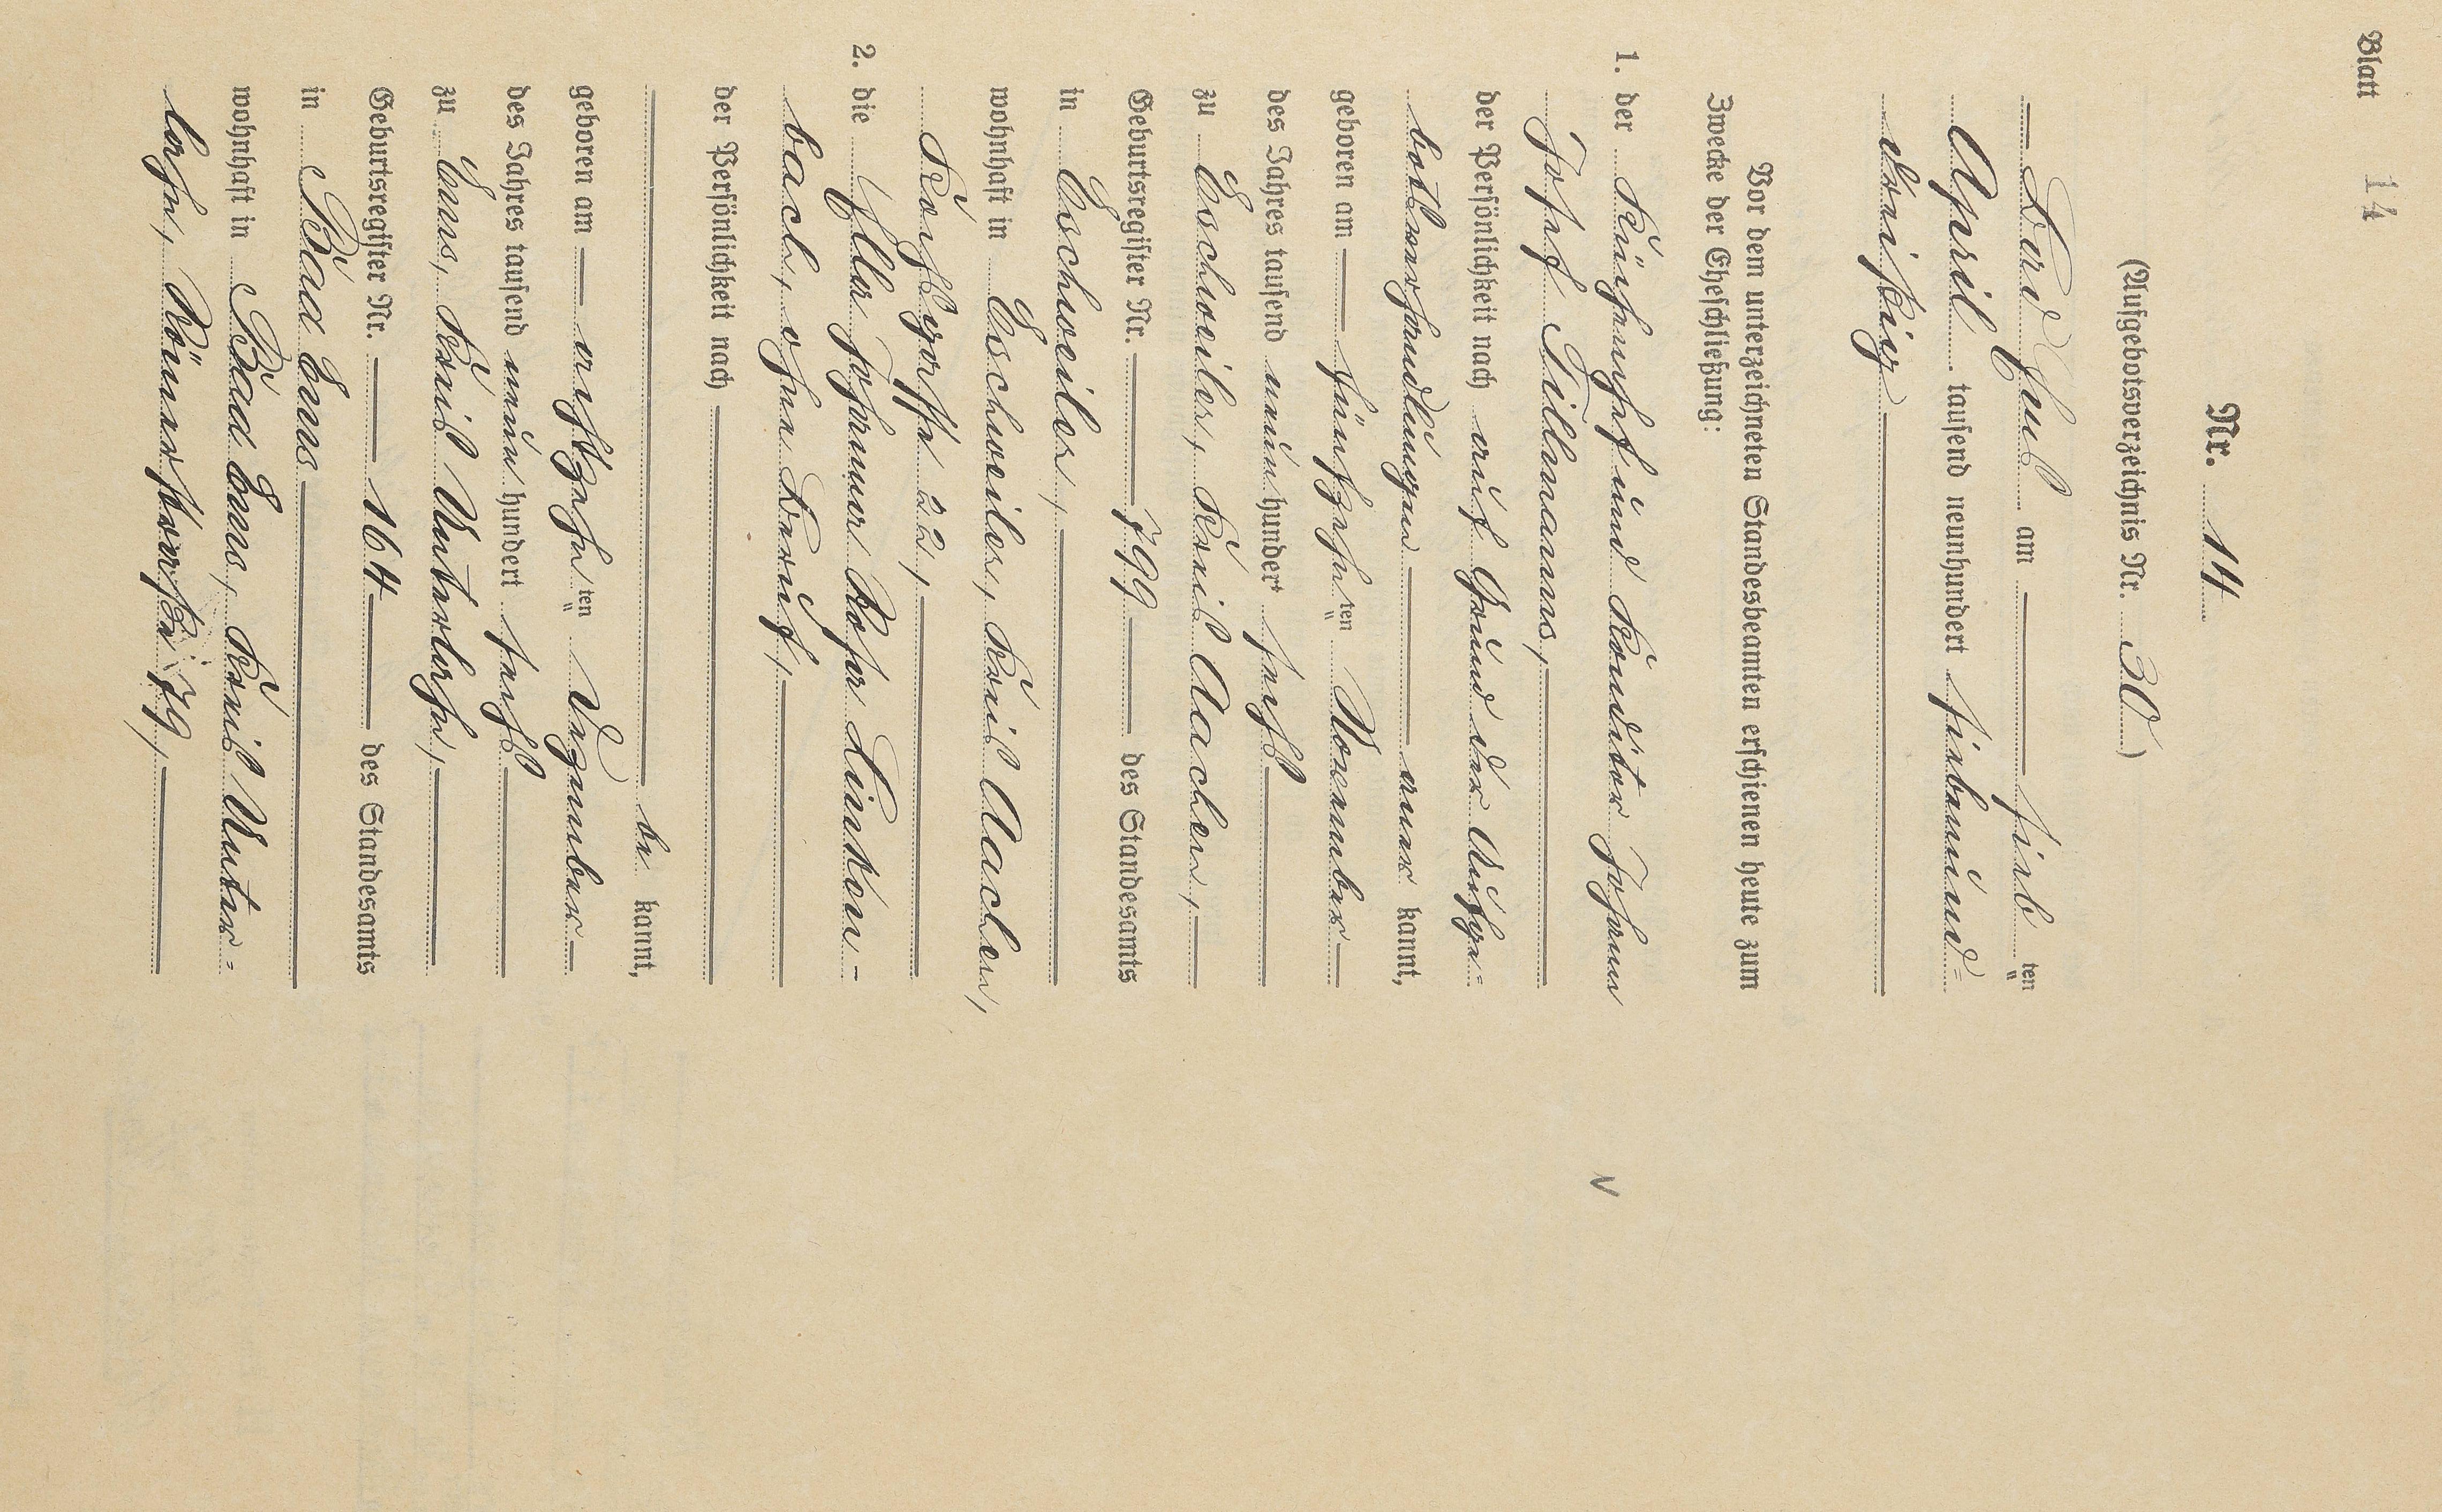 Blatt 14
Nr. 14
(Aufgebotsverzeichnis Nr. 30)
— Bad Ems am — sieb ten
April tausend neunhundert siebenund=
dreißig —
Vor dem unterzeichneten Standesbeamten erschienen heute zum
Zwecke der Eheschließung:
1. der Kaufmann und Konditor Johann
Josef Tillmanns, —
der Persönlichkeit nach auf Grund der Aufge=
botsverhandlungen — aner kannt,
geboren am — fünfzehn ten November —
des Jahres tausend neun hundert sechs —
zu Eschweiler, Kreis Aachen, —
Geburtsregister Nr. — 799 — des Standesamts
in Eschweiler, —
wohnhaft in Eschweiler, Kreis Aachen,
22, —
2. die Ella Johanna Rosa Linken=
bach, ohne Beruf, —
der Persönlichkeit nach —
— be kannt,
geboren am — achtzehn ten Dezember —
des Jahres tausend neun hundert sechs —
zu Ems, Kreis Unterlahn, —
Geburtsregister Nr. — 164 — des Standesamts
in Bad Ems —
wohnhaft in Bad Ems, Kreis Unter=
lahn, Römerstraße 79, —